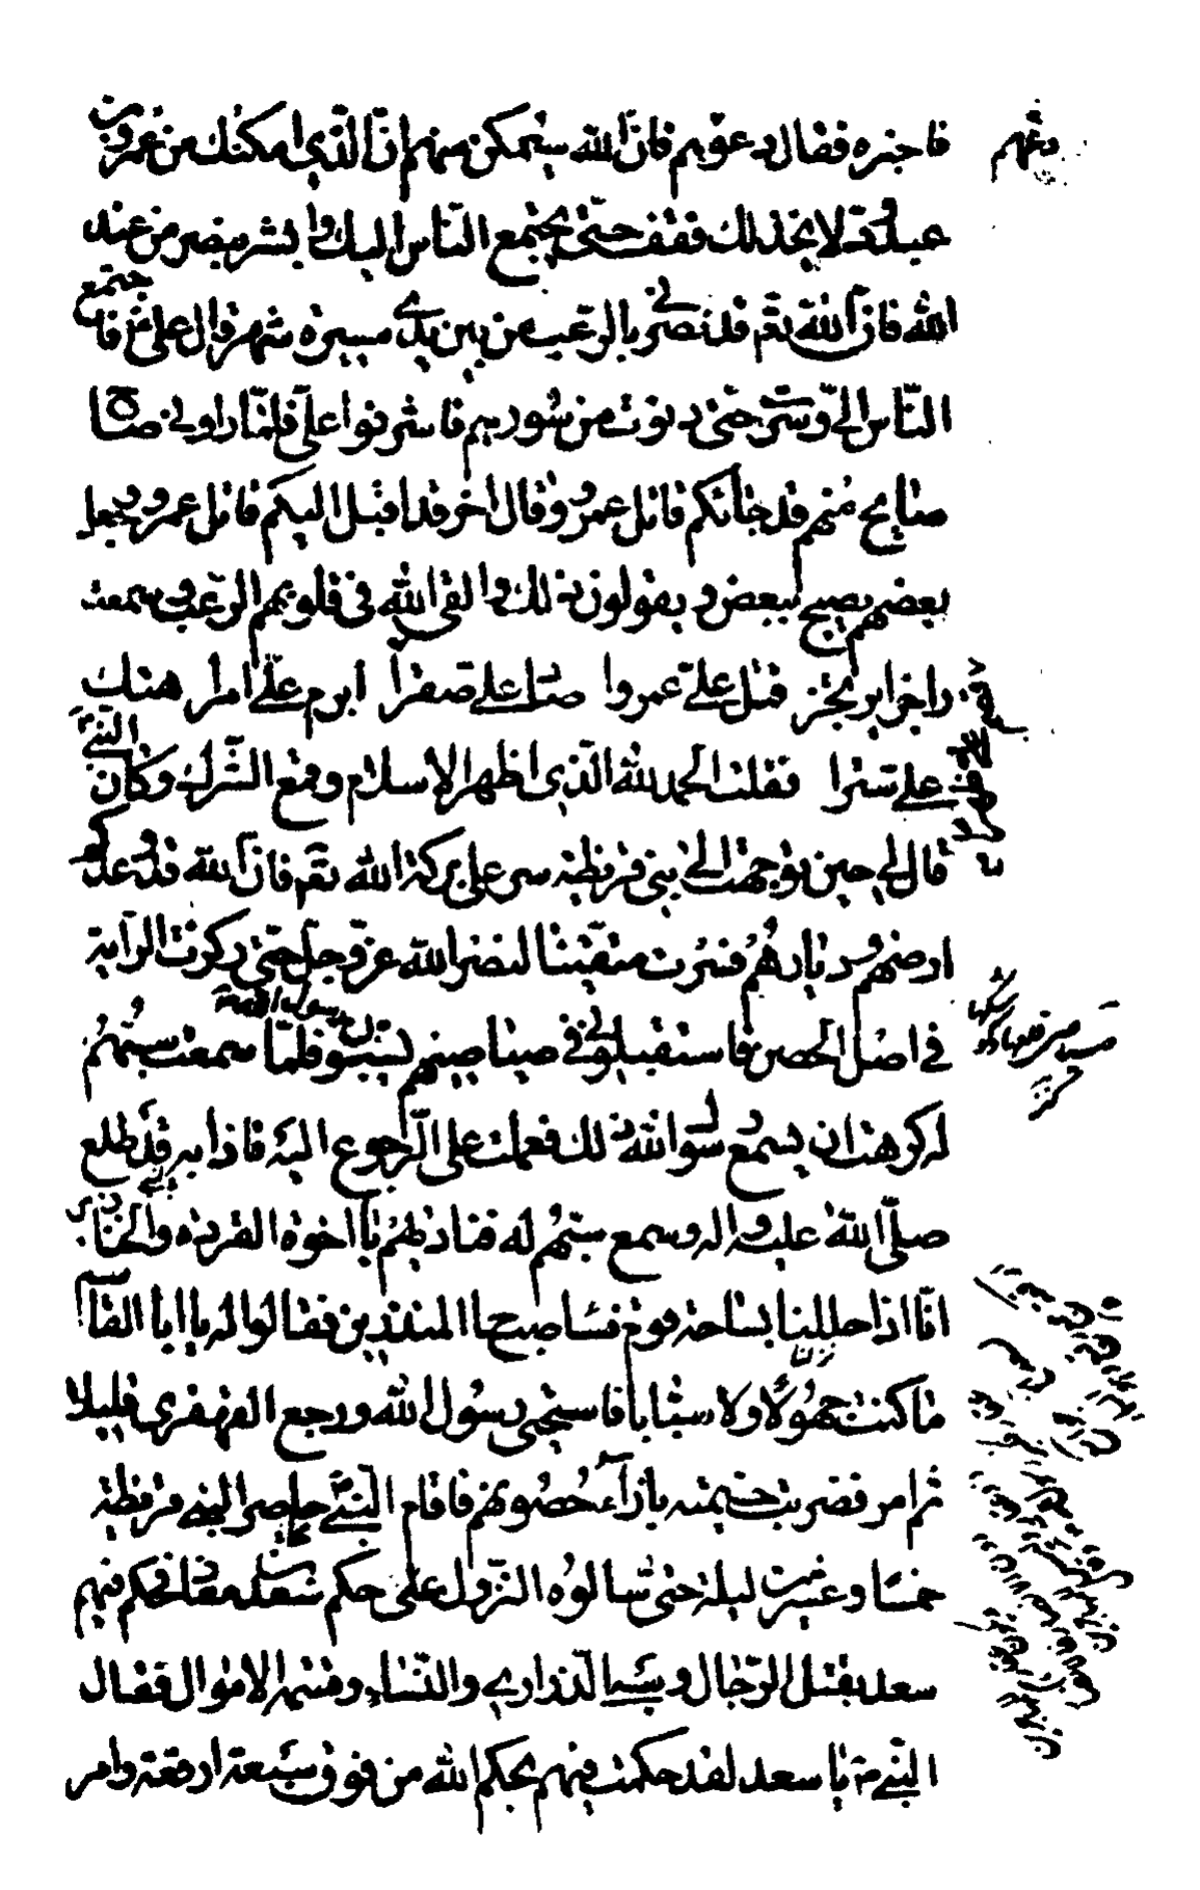 فاخبره فقال دعوهم فان الله سيمكن منهم ان الذي امكنك من عمرو بن
عبدود لا يخذلك فقف حتى يجتمع الناس اليك وابشر بنصر من عند
الله فان الله تعم قد نصرني بالرعب من بين يدي مسيرة شهر قال علي فاجتمع
الناس الي وسرت حتى دنوت من سورهم فاشرفوا علي فلما راوني صاح
صايح منهم قد جائكم قاتل عمرو وقال اخر قد اقبل اليكم قاتل عمرو وجعل
بعضهم يصيح لبعض ويقولون ذلك والقى الله في قلوبهم الرعب وسمعت
راجزا يرتجز قتل علي عمروا صاد علي صقرا ابرم علي امرا هتك
علي سترا فقلت الحمد لله الذي اظهر الاسلام وقمع الشرك وكان النبي
قال لي حين توجهت الى بني قريظة سر على بركة الله تعم فان الله قد وعدكم
ارضهم وديارهم فسرت متيقنا لنصر الله عز وجل حتى ركزت الراية
في اصل الحصن فاستقبلوني في صياصيهم يسبون رسول الله فلما سمعت سبهم
له كرهت ان يسمع رسول الله ذلك فعملت على الرجوع اليه فاذا به قد طلع
صلى الله عليه واله وسمع سبهم له فناديهم يا اخوة القردة والخنازير
انا اذا حللنا بساحة قوم فساء صباح المنذرين فقالوا له يا ابا القاسم
ما كنت جهولا ولا سبابا فاستحيى رسول الله ورجع القهقرى قليلا
ثم امر فضربت خيمته بازاء حصونهم فاقام النبي حاصرا لبني قريظة
خمسا وعشرين ليلة حتى سالوه النزول على حكم سعد بن معاذ فحكم فيهم
سعد بقتل الرجال وسبي الذراري والنساء وقسمة الاموال فقال
النبي يا سعد لقد حكمت فيهم بحكم الله من فوق سبعة ارقعة وامر